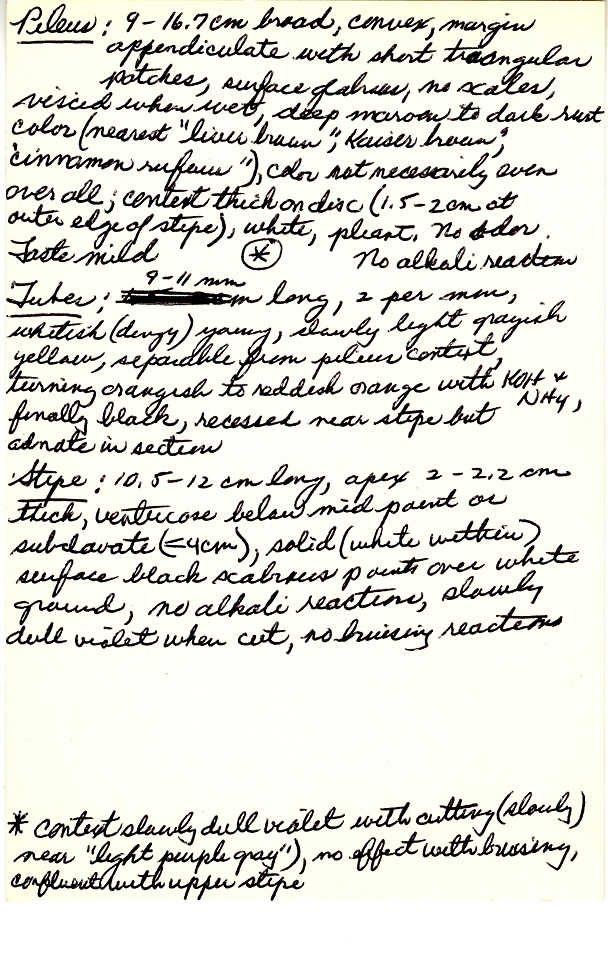 Pileus: 9-16.7cm broad, convex, margin
appendiculate with short triangular
patches, surface glabrous, no scales,
viscid when wet, deep maroon to dark rust
color (nearest "liver brown", Kaiser brown",
"cinnamon rufous"), color not necessarily even
over all; context thick on disc (1.5-2cm at
outer edge of stipe), white, pliant. No odor.
Taste mild (*) No alkali reaction
9-11 mm
Tubes: m long, 2 per mm,
whitish (dingy) young, slowly light grayish
yellow, separable from pileus context,
turning orangish to reddish orange with KOH &
NH4,
finally black, recessed near stipe but
adnate in section
Stipe: 10.5-12 cm long, apex 2-2.2 cm
thick, ventricose below mid point or
subclavate (=4cm), solid (white within)
surface black scabrous points over white
ground, no alkali reaction, slowly
dull violet when cut, no bruising reactions
* context slowly dull violet with cutting (slowly)
near "light purple gray"), no effect with bruising,
confluent with upper stipe